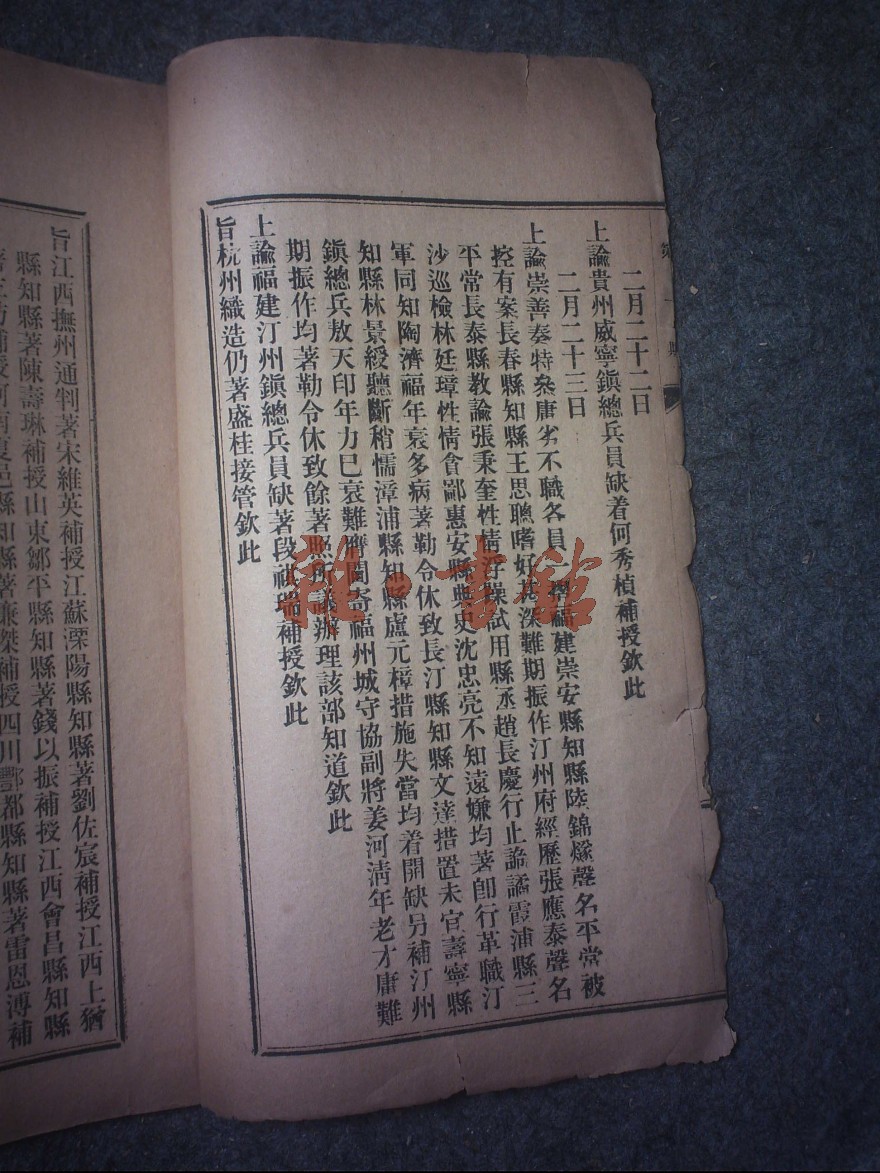 第一期
二月二十二日
上諭貴州威寧鎭總兵員缺着何秀楨補授欽此
二月二十三日
上諭崇善奏特叅庸劣不職各員一摺福建崇安縣知縣陸錦燧聲名平常被
控有案長春縣知縣王思聰嗜好甚深難期振作汀州府經歷張應泰聲名
平常長泰縣教諭張秉奎性情浮躁試用縣丞趙長慶行止詭譎霞浦縣三
沙巡檢林廷璋性情貪鄙惠安縣典史沈忠亮不知遠嫌均著卽行革職汀
軍同知陶濟福年衰多病著勒令休致長汀縣知縣文達措置未宜壽寧縣
知縣林景綬聽斷稍懦漳浦縣知縣盧元樟措施失當均着開缺另補汀州
鎭總兵敖天印年力已衰難膺閫寄福州城守協副將姜河淸年老才庸難
期振作均著勒令休致餘著照所議辦理該部知道欽此
上諭福建汀州鎭總兵員缺著段祺瑞補授欽此
旨杭州織造仍著盛桂接管欽此
旨江西撫州通判著宋維英補授江蘇溧陽縣知縣著劉佐宸補授江西上猶
縣知縣著陳壽琳補授山東鄒平縣知縣著錢以振補授江西會昌縣知縣
邑縣知縣著兼傑補授四川酆都縣知縣著雷恩溥補
雜·書館